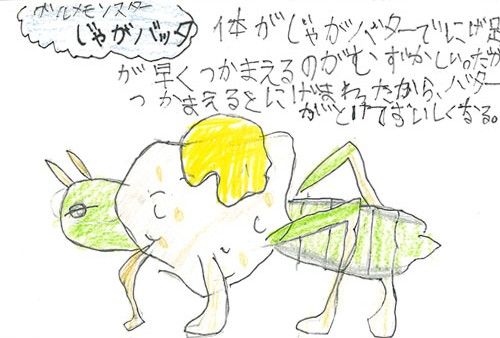 グルメモンスター
じゃがバッタ
体がじゃがバターでにげ足
が早くつかまえるのがむずかしい。だが
つかまえるとにげまわったから、バター
がとけておいしくなる。